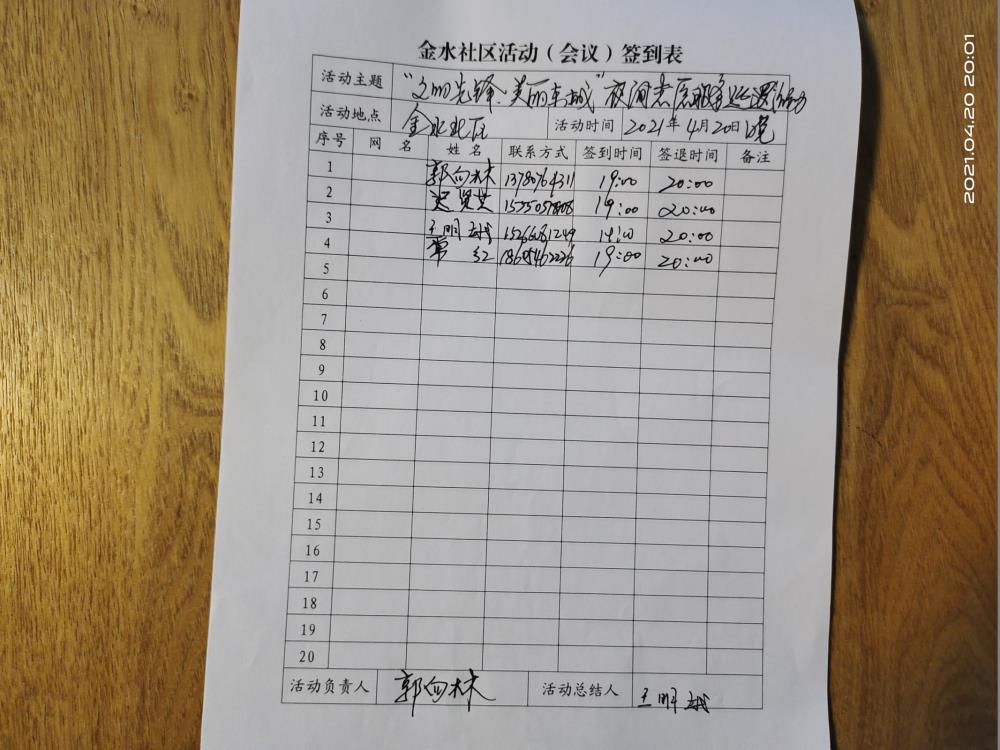 金水社区活动（会议）签到表
活动主题 “文明先锋、美丽东城”夜间志愿服务巡逻活动
活动地点 金水社区 活动时间 2021年4月20日晚
序号 网名 姓名 联系方式 签到时间 签退时间 备注
1 郭向林 19:00 20:00
2 19:00 20:00
3 王明越 20:00
4 常红 19:00 20:00
5
6
7
8
9
10
11
12
13
14
15
16
17
18
19
20
活动负责人 郭向林 活动总结人 王明越
2021.04.20 20:01